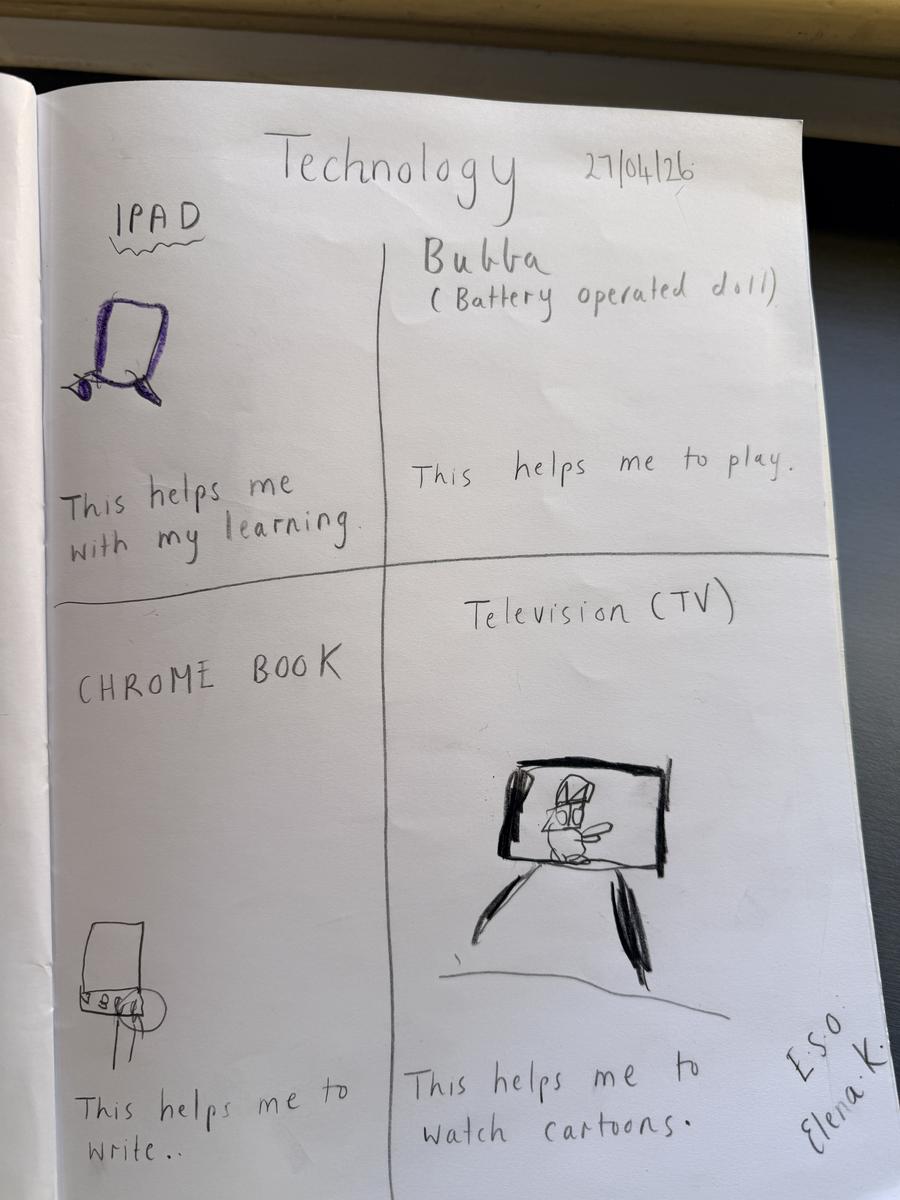 Technology 27/04/26
IPAD
This helps me
with my learning.
Bubba
(Battery operated doll)
This helps me to play.
CHROME BOOK
This helps me to
write..
Television (TV)
This helps me to
watch cartoons.
E.S.O.
Elena.K.